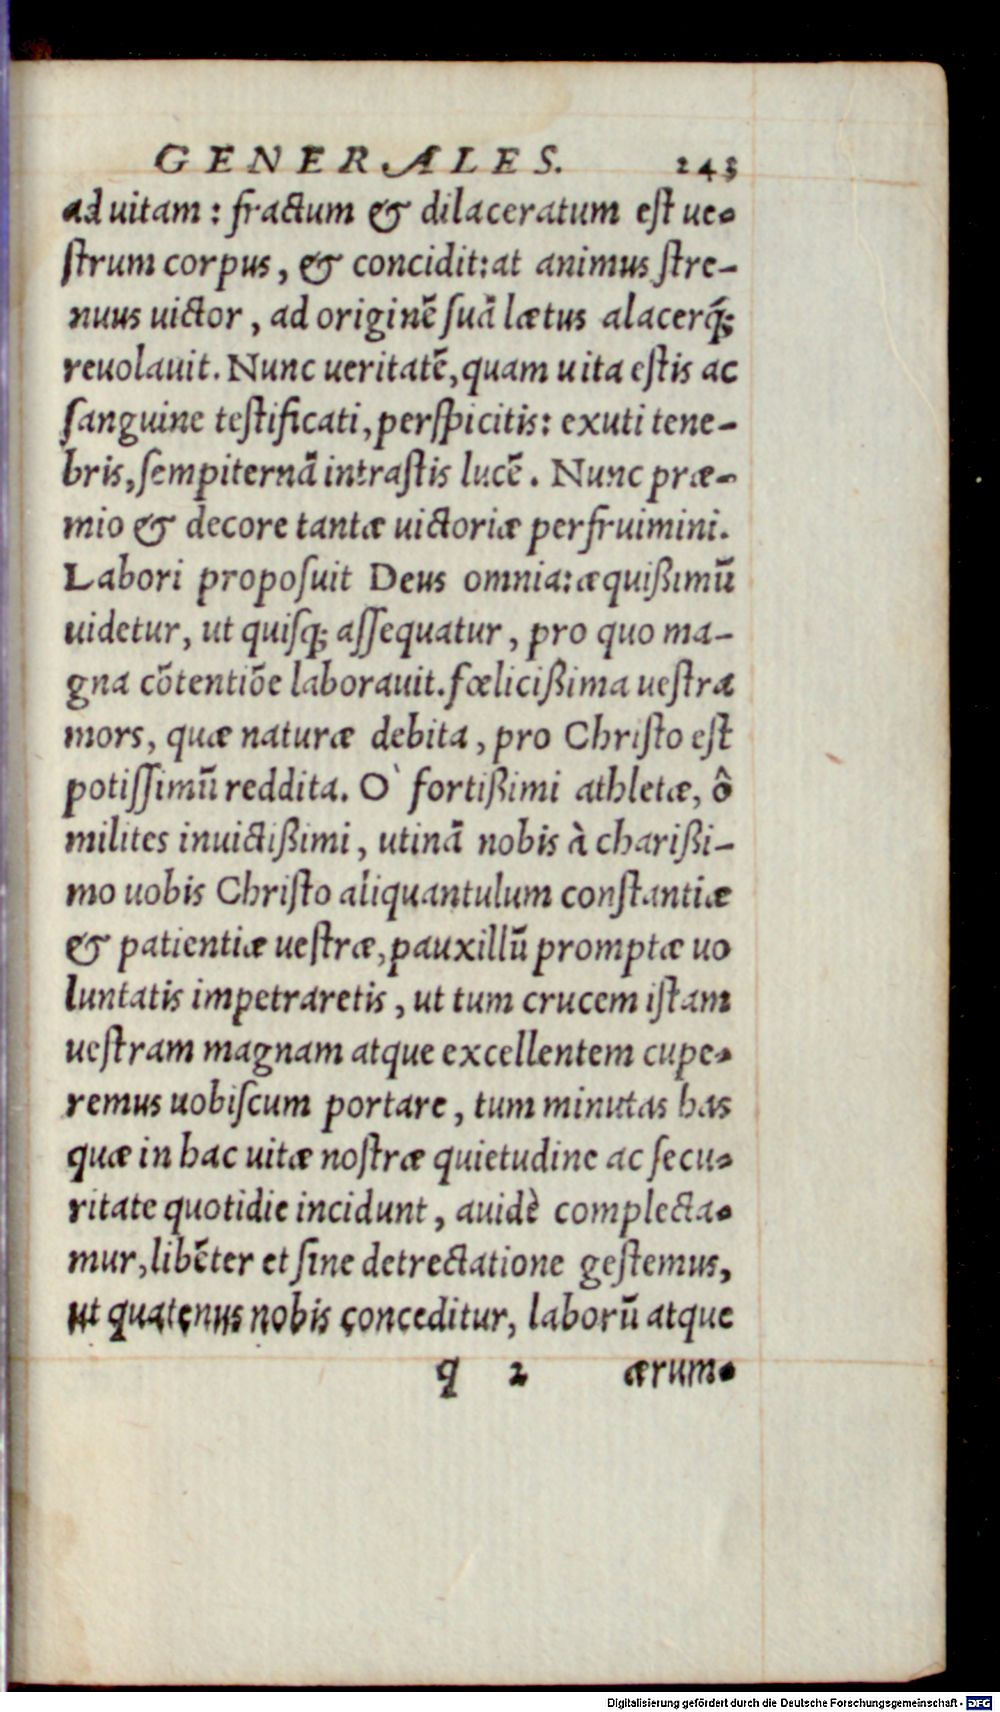 GENERALES. 243
ad uitam : fractum & dilaceratum eſt ue-
ſtrum corpus, & concidit: at animus ſtre-
nuus uictor, ad originē ſuā lætus alacerq́;
reuolauit. Nunc ueritatē, quam uita eſtis ac
ſanguine teſtificati, perſpicitis: exuti tene-
bris, ſempiternā intraſtis lucē. Nunc præ-
mio & decore tantæ uictoriæ perfruimini.
Labori propoſuit Deus omnia: æquißimū
uidetur, ut quiſq; aſſequatur, pro quo ma-
gna cōtentiōe laborauit. fœlicißima ueſtra
mors, quæ naturæ debita, pro Chriſto eſt
potiſſimū reddita. O` fortißimi athletæ, ô
milites inuictißimi, utinā nobis à charißi-
mo uobis Chriſto aliquantulum conſtantiæ
& patientiæ ueſtræ, pauxillū promptæ uo
luntatis impetraretis, ut tum crucem iſtam
ueſtram magnam atque excellentem cupe-
remus uobiſcum portare, tum minutas has
quæ in hac uitæ noſtræ quietudine ac ſecu-
ritate quotidie incidunt, auidè complecta-
mur, libēter et ſine detrectatione geſtemus,
ut quatenus nobis conceditur, laborū atque
q 2 ærum-
Digitalisierung gefördert durch die Deutsche Forschungsgemeinschaft - DFG